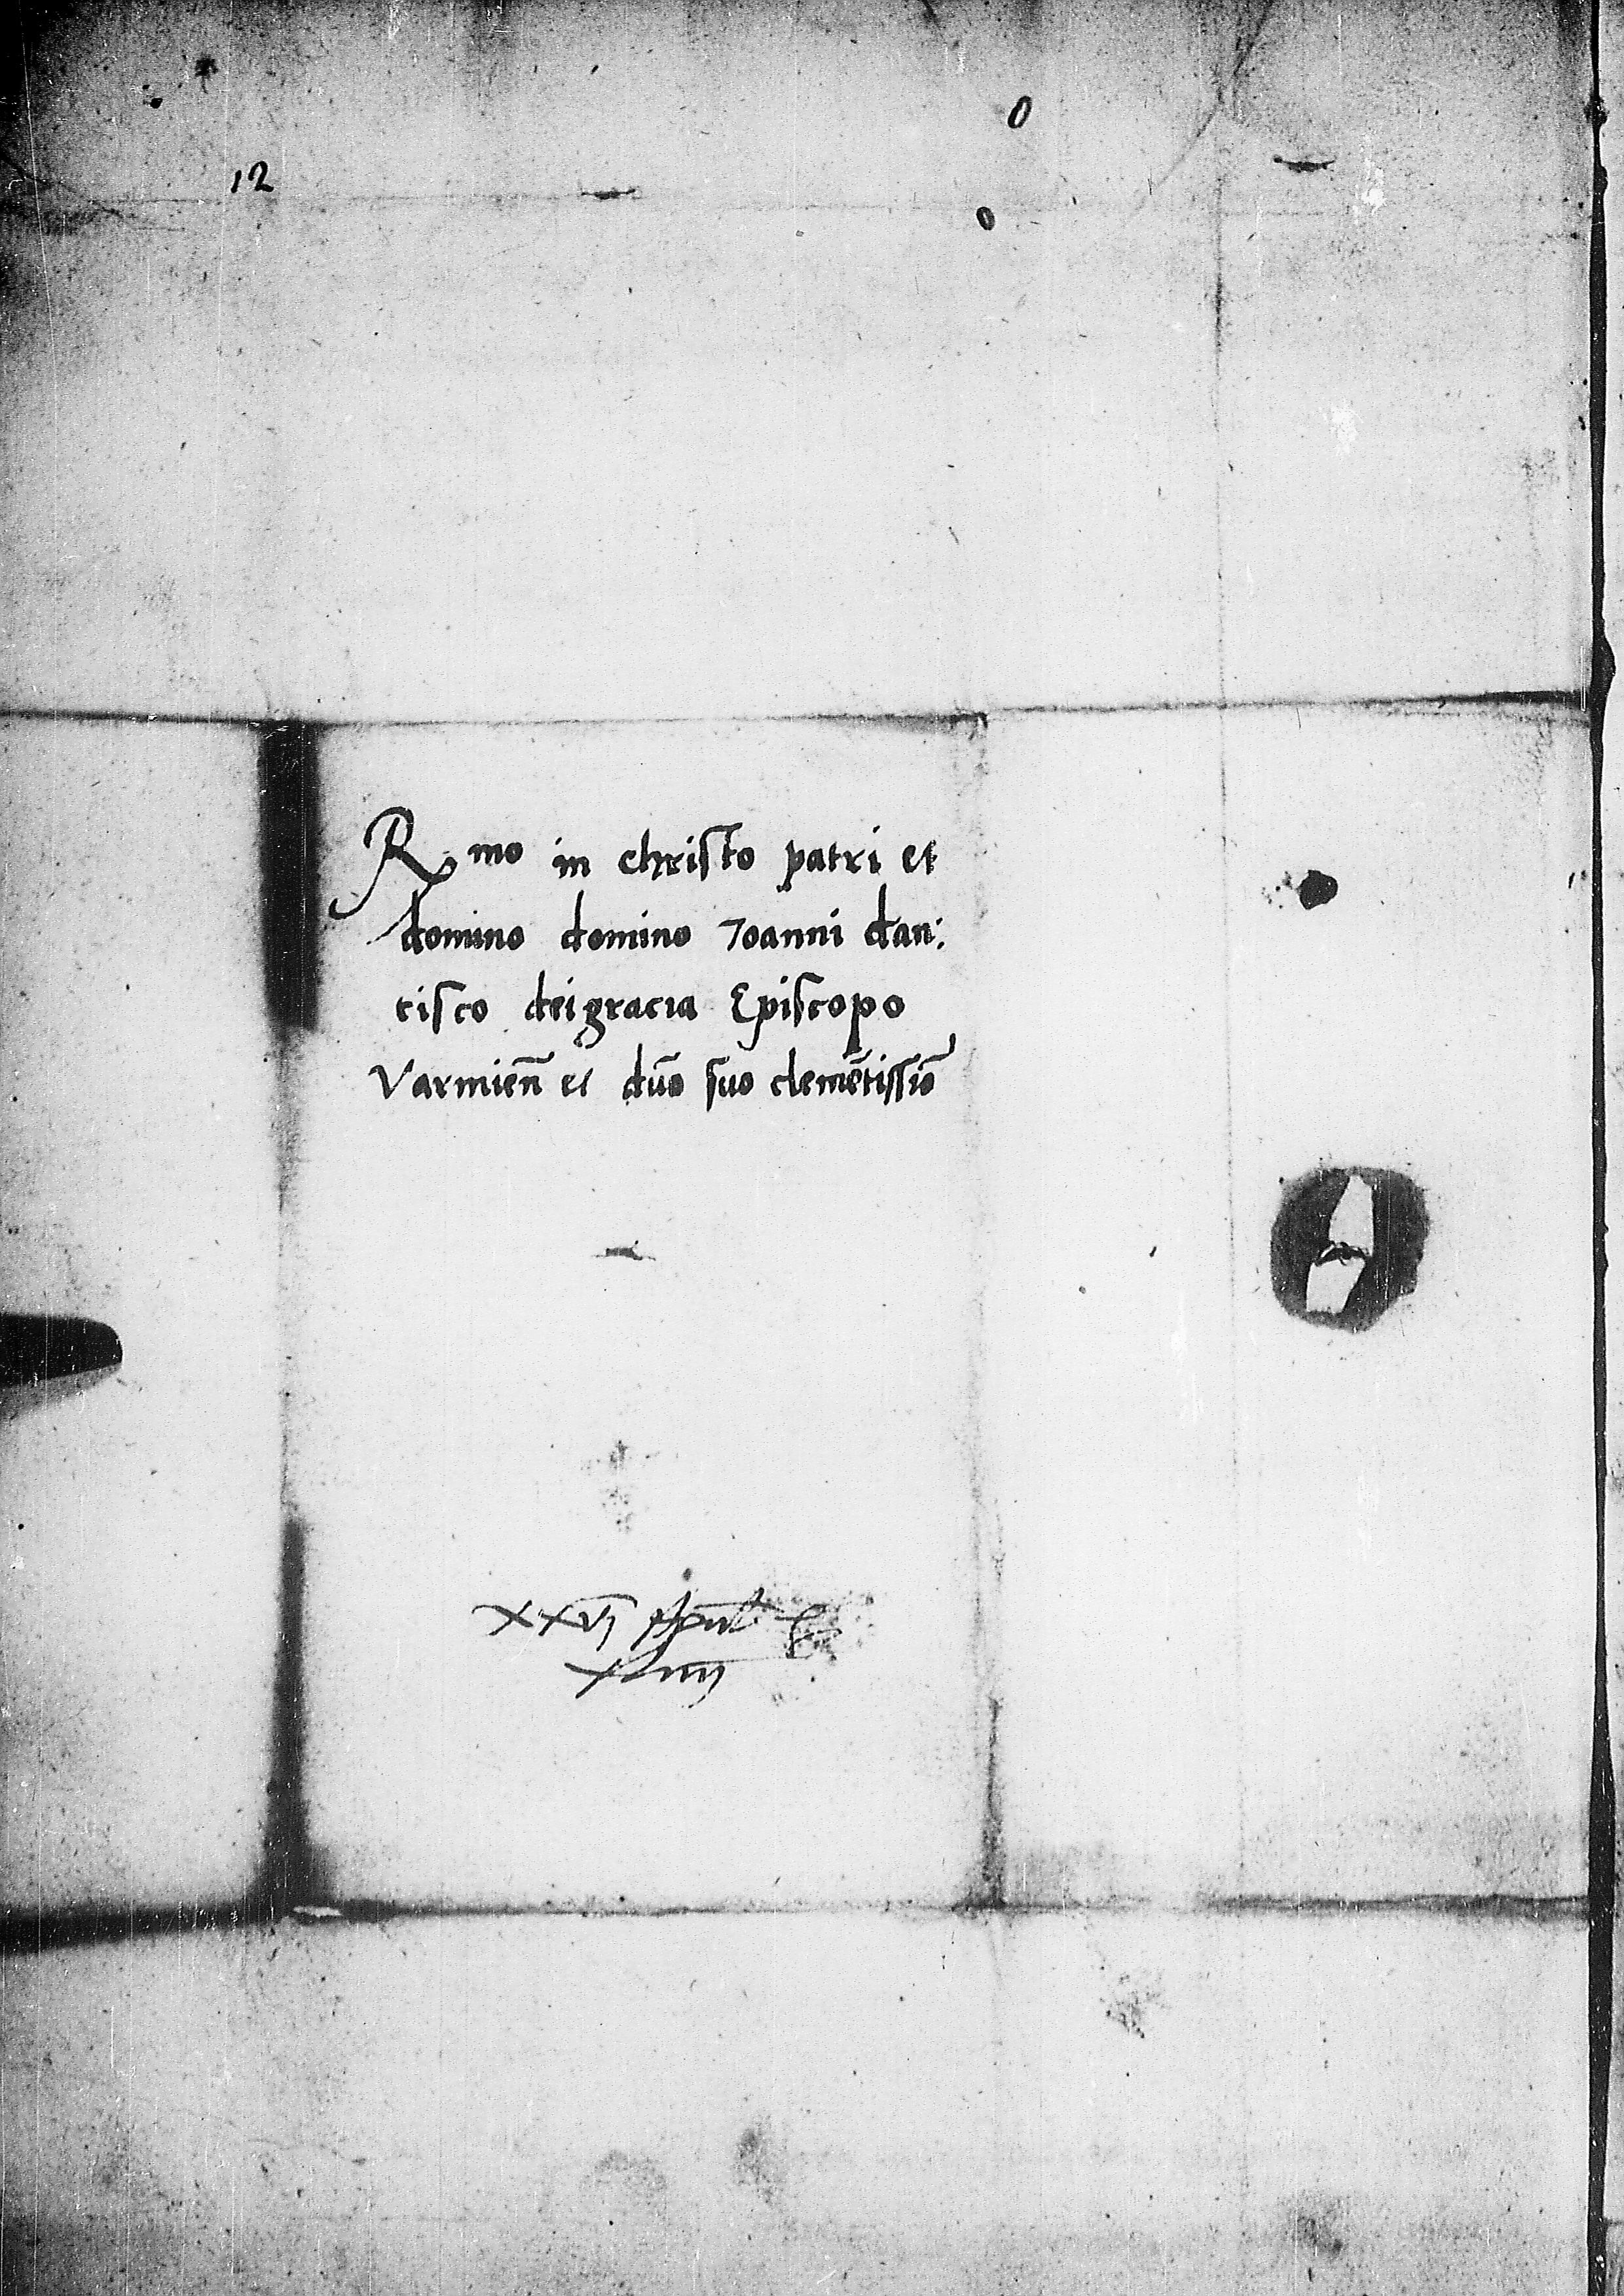 12
0
R. mo in christo patri et
domino domino Joanni dan:
tisco dei gracia Episcopo
Varmien̄ et dn̄o suo clemētissiō
XXVI April
XLIIII